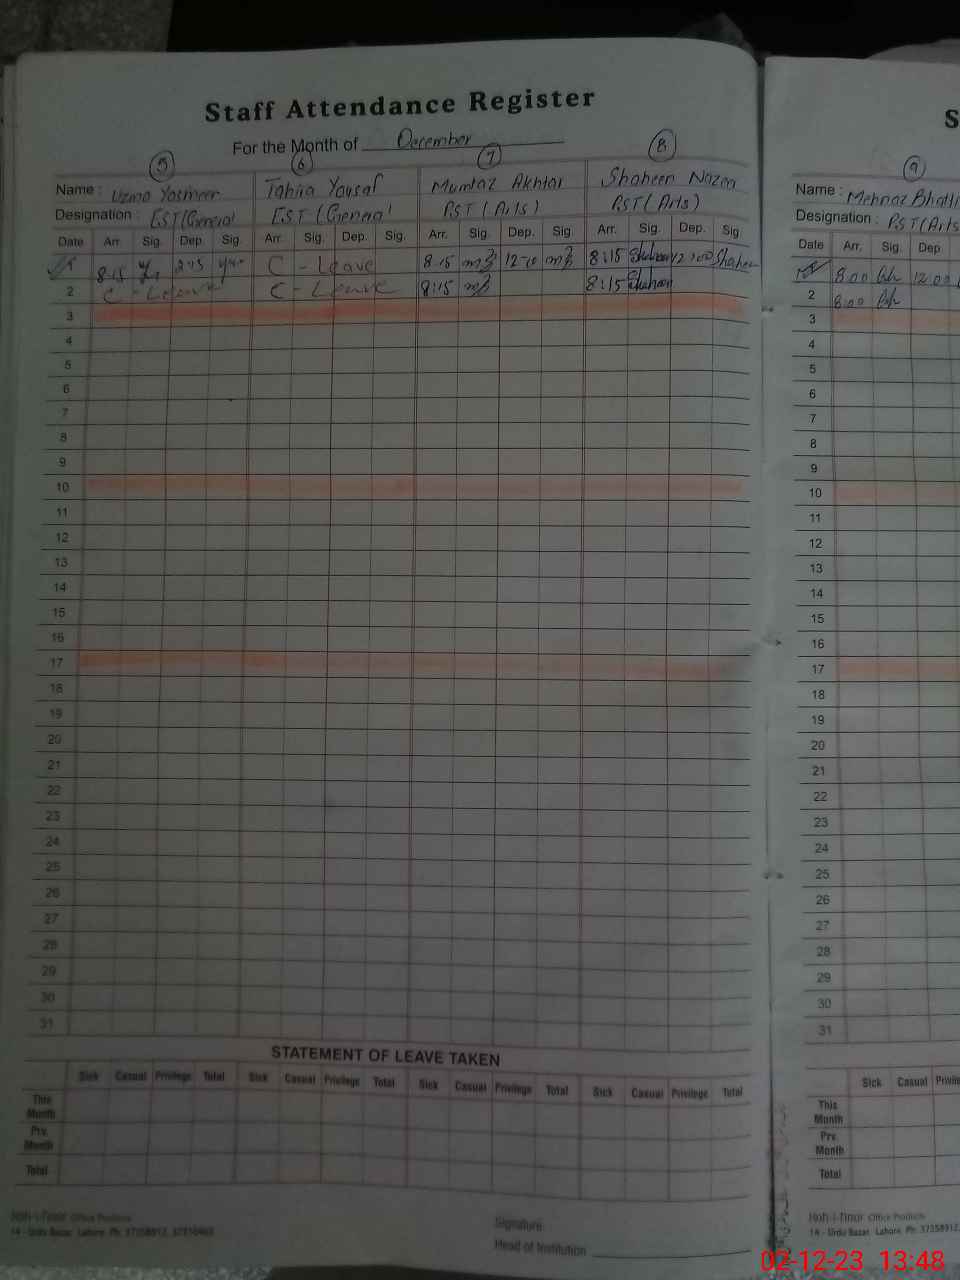 Staff Attendance Register
For the Month of December
5 6 7 8
Name : Uzma Yasmeen Tahira Yousaf Mumtaz Akhtar Shaheen Nazea
Designation : EST (General EST (General P.ST ( Arts ) P.ST ( Arts )
Date Arr. Sig. Dep. Sig. Arr. Sig. Dep. Sig. Arr. Sig. Dep. Sig. Arr. Sig. Dep. Sig
1 8:15 2:45 C - Leave 8:15 12-0 8:15 Shaheen 12:00 Shaheen
2 C - Leave C - Leave 8:15 8:15 Shaheen
3
4
5
6
7
8
9
10
11
12
13
14
15
16
17
18
19
20
21
22
23
24
25
26
27
28
29
30
31
STATEMENT OF LEAVE TAKEN
Sick Casual Privilege Total Sick Casual Privilege Total Sick Casual Privilege Total Sick Casual Privilege Total
This
Month
Prv.
Month
Total
Koh-i-Noor Office Products
14 - Urdu Bazar, Lahore. Ph: 37358912,
Signature
Head of Institution
S
9
Name : Mehnaz Bhatti
Designation : P.ST (Arts
Date Arr. Sig. Dep.
8:00 12:00
2 8:00
3
4
5
6
7
8
9
10
11
12
13
14
15
16
17
18
19
20
21
22
23
24
25
26
27
28
29
30
31
Sick Casual
This
Month
Prv.
Month
Total
Koh-i-Noor Office Products
14 - Urdu Bazar, Lahore. Ph: 37358912,
02-12-23 13:48